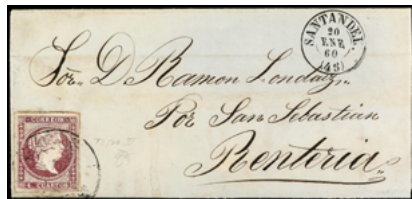 SANTANDER
20
ENE
60
(43)
Sor. D. Ramon Londaiz
Por San Sebastian
Renteria
CUARTOS